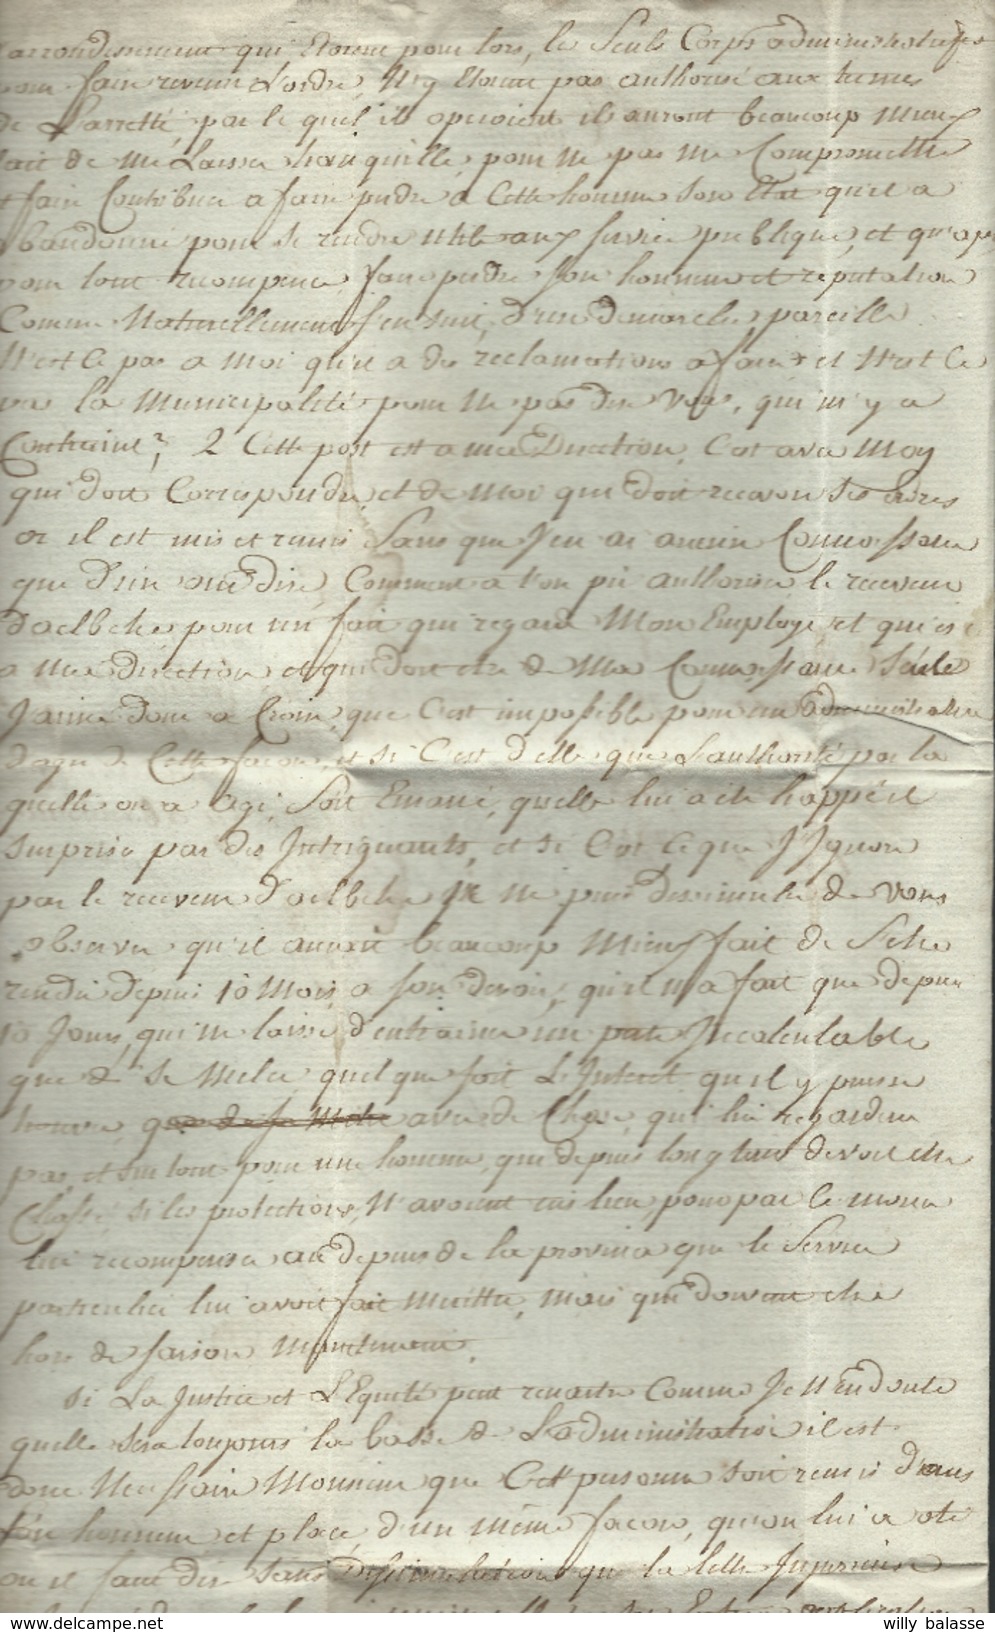 arrondissement qui Etoient pour lors, les Seuls Corps administratifs
pour faire revenir L'ordre, N'y Etoient pas authorisé aux termes
de L'arretté, par le quel ils operoient ils auront beaucoup mieux
fait de me Laisser tranquille, pour ne pas me Compromettre
et faire Contribuer a faire perdre a Cette homme Son Etat qu'il a
abandonné pour se rendre utile aux Service publique, et qu'apr
pour tout recompence, faire perdre Son honneur et reputation
Comme Naturellement S'en suit, d'une demarche, pareille
N'est Ce pas a Moi qu'il a des reclamations a faire et N'est Ce
pas la Municipalité pour Ne pas dire vous, qui m'y a
Contraint? 2 Cette post est a ma Direction, C'est avec Moy
qui doit Correspondre, et de Moi qui doit recevoir Ses ordres
or il est mis et remis Sans que J'en ai aucun Connoissance
que d'un oui dire, Comment a t'on pu authoriser le receveur
d'aelbeke, pour un fait qui regard Mon Employe et qui est
a Ma direction et qui doit etre de Ma Connoissance Seule
J'aime donc a Croire, que C'est impossible pour un administration
d'agir de Cette facon, et si C'est d'elle que L'authorité par la
quelle on a Agi, Soit Emané, quelle lui a ete happé et
Surprise par des Intriguants, et si C'est Ce que J'Ignore
par le receveur d'aelbeke je ne puis dissimuler de vous
observer qu'il auroit beaucoup Mieux fait de S'etre
rendu depuis 10 Mois, a Son devoir, qu'il n'a fait que depuis
10 Jours, qui ne laisse d'entrainer un perte Incalculable
que de Se Meler, quelque soit L'Interet qu'il y puisse
trouver, que de se Meler avec de Chose, qui lui regardent
pas, et surtout pour une homme, que depuis longtems devoit etre
Chassé, si les protections, N'avoient eus lieu pour par Ce moien
lui recompenser au depens de la province que le Service
particulier lui avoit fait Meritter, mais qui doivent etre
hors de Saison Maintenant,
Si La Justice et L'Equité peut renaitre Comme Je N'En doute
quelle sera toujours la basse de L'administration il est
donc Necessaire Monsieur que Cette personne soit remis dans
Son honneur et placé d'un même facon, qu'on lui a oté
ou il faut dire Sans Dissimulation que la
willy balasse